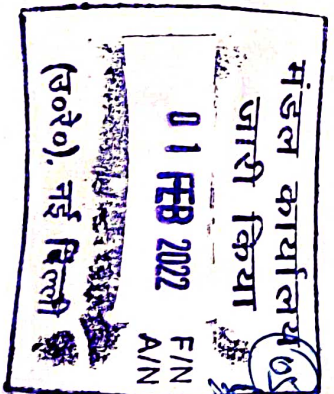 मंडल कार्यालय
जारी किया
01 FEB 2022 F/N
A/N
(उ०रे०), नई दिल्ली